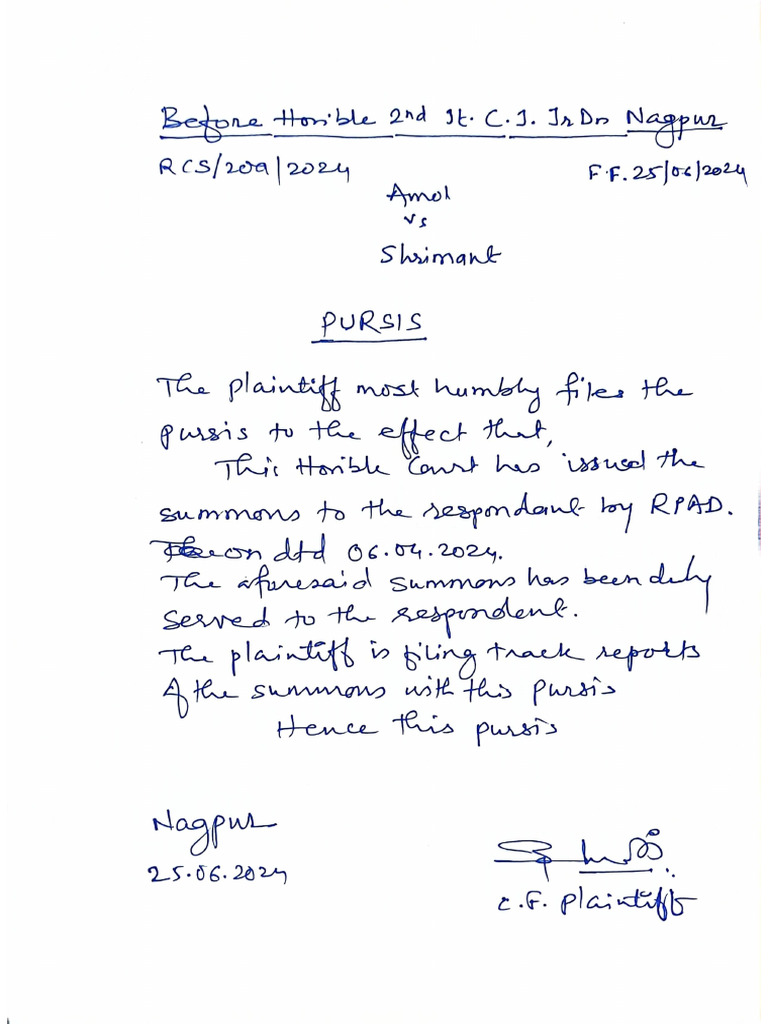 Before Hon'ble 2nd Jt. C.J. Jr Dn Nagpur
RCS/209/2024 F.F. 25/06/2024
Amol
vs
Shrimant
PURSIS
The plaintiff most humbly files the
pursis to the effect that,
This Hon'ble Court has issued the
summons to the respondant by RPAD.
on dtd 06.04.2024.
The aforesaid summons has been duly
served to the respondent.
The plaintiff is filing track reports
of the summons with this pursis
Hence this pursis
Nagpur
25.06.2024
C.F. Plaintiff